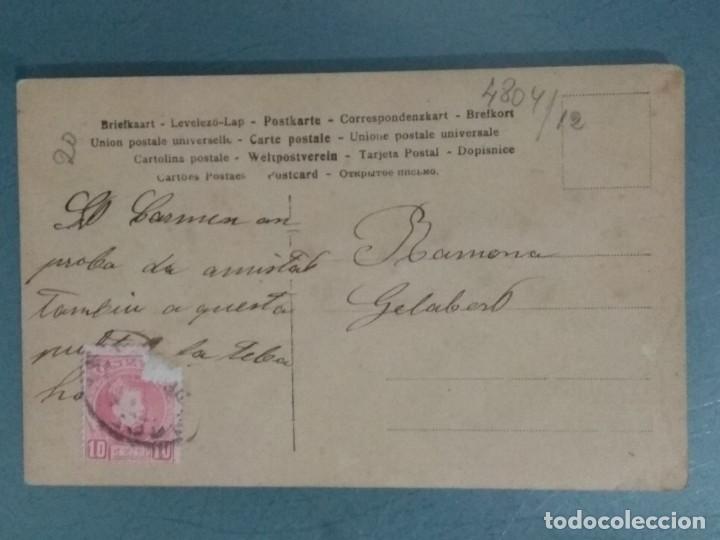 4804/12
20
Briefkaart - Levelező-Lap - Postkarte - Correspondenzkart - Brefkort
Union postale universelle - Carte postale - Unione postale universale
Cartolina postale - Weltpostverein - Tarjeta Postal - Dopisnice
Cartões Postaes Postcard - Открытое письмо.
Carmen an
proba da amistat
tambiu a questa
a la teba
Ramona
Gelabert
10 10
todocoleccion
todocoleccion.net